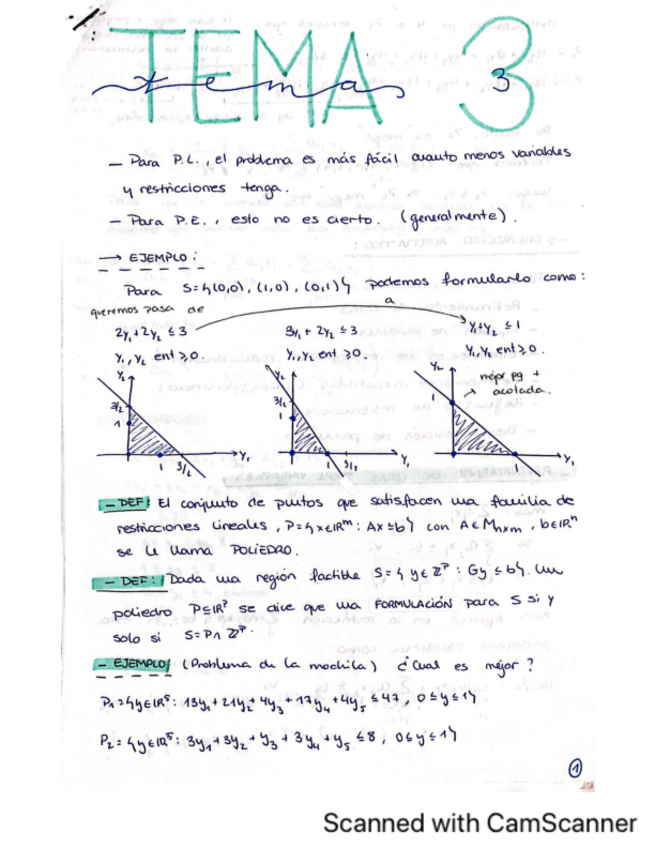 TEMA 3
tema 3
— Para P.L., el problema es más fácil cuanto menos variables
y restricciones tenga.
— Para P.E., esto no es cierto. (generalmente).
→ EJEMPLO:
Para S={(0,0), (1,0), (0,1)} podemos formularlo como:
queremos pasar de
a
2y₁+2y₂ ≤ 3
3y₁ + 2y₂ ≤ 3
y₁+y₂ ≤ 1
y₁, y₂ ent ≥0.
y₁, y₂ ent ≥0.
y₁, y₂ ent ≥0.
mejor pq +
acotada.
y₂
3/2
1
1
3/2
y₁
y₂
3/2
1
1
3/2
y₁
y₂
1
1
y₁
— DEF: El conjunto de puntos que satisfacen una familia de
restricciones lineales, P={x∈ℝᵐ: Ax≤b} con A∈Mₙₓₘ, b∈ℝⁿ
se le llama POLIEDRO.
— DEF: Dada una región factible S={y∈ℤᵖ: Gy≤b}. Un
poliedro P⊆ℝᵖ se dice que una FORMULACIÓN para S si y
solo si S=P∩ℤᵖ.
— EJEMPLO (Problema de la mochila) ¿Cual es mejor?
P₁={y∈ℝ⁵: 13y₁+21y₂+4y₃+17y₄+4y₅ ≤47, 0≤y≤1}
P₂={y∈ℝ⁵: 3y₁+3y₂+y₃+3y₄+y₅ ≤8, 0≤y≤1}
1
Scanned with CamScanner